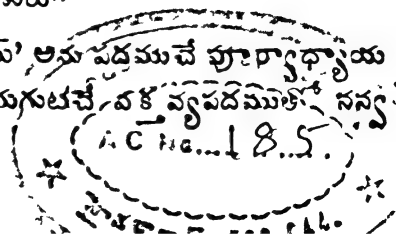 అను పదముచే పూర్వాధ్యాయ
గుటచే వక్తవ్యపదముతో నన్వ
A C No....185.